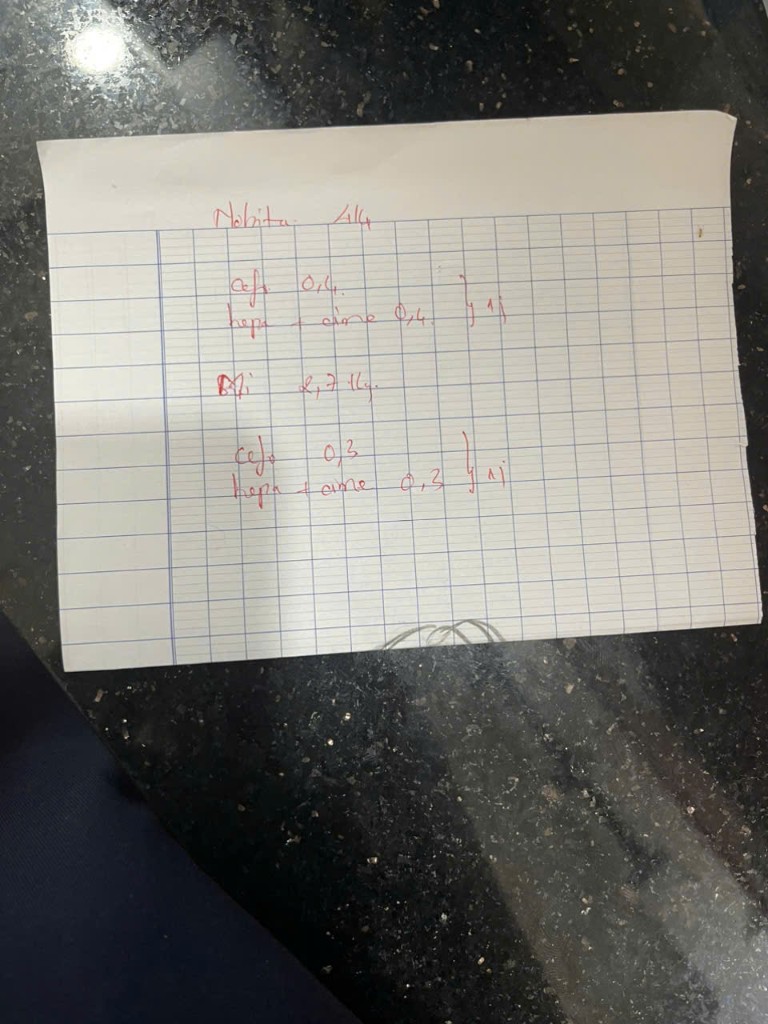 Nobita 4k
cefo 0,4
hepa + cime 0,4 } 1j
Mi 2,7 kg
cefo 0,3
hepa + cime 0,3 } 1j